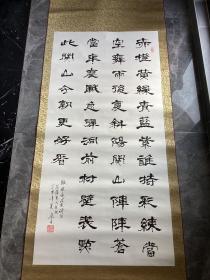 赤橙黃綠青藍紫誰持彩練當
空舞雨後復斜陽關山陣陣蒼
當年鏖戰急彈洞前村壁裝點
此關山今朝更好看